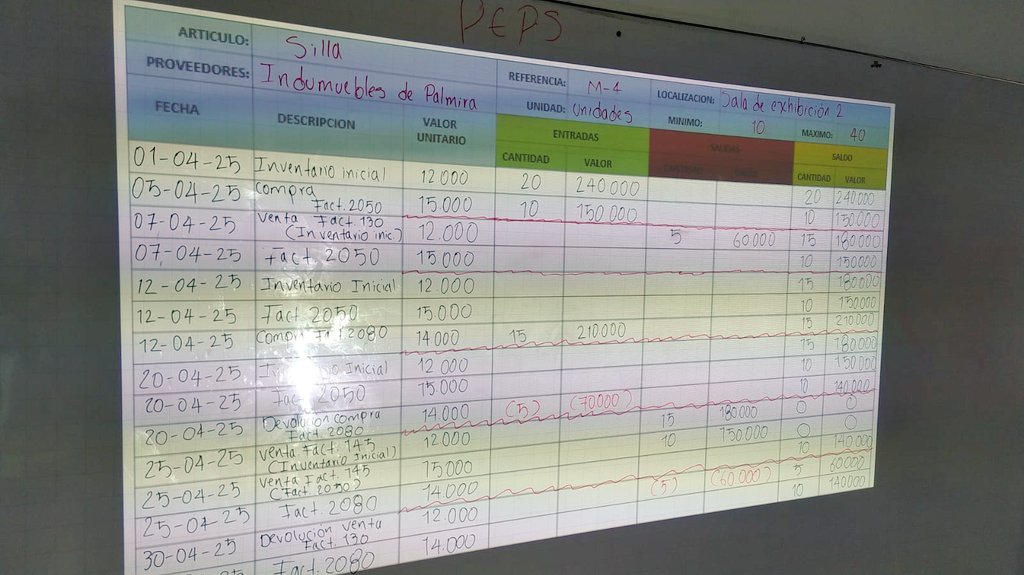 PEPS
ARTICULO: Silla
PROVEEDORES: Indumuebles de Palmira REFERENCIA: M-4 LOCALIZACION: Sala de exhibición 2
UNIDAD: Unidades MINIMO: 10 MAXIMO: 40
FECHA DESCRIPCION VALOR UNITARIO ENTRADAS SALIDAS SALDO
CANTIDAD VALOR CANTIDAD VALOR
01-04-25 Inventario inicial 12000 20 240000 20 240000
05-04-25 compra Fact. 2050 15.000 10 150 000 10 150000
07-04-25 venta Fact. 130 (Inventario inic.) 12.000 5 60000 15 180000
07-04-25 Fact. 2050 15000 10 150000
12-04-25 Inventario Inicial 12.000 15 180000
12-04-25 Fact 2050 15.000 10 150000
12-04-25 Fact 2080 14000 15 210000 15 210000
20-04-25 Inicial 12 000 15 180000
20-04-25 2050 15000 10 150000
20-04-25 Devolución compra Fact. 2080 14.000 (5) (70000) 10 140000
25-04-25 venta Fact. 145 (Inventario Inicial) 12000 15 180000 0 0
25-04-25 venta Fact. 145 (Fact 2050) 15000 10 150000 0 0
25-04-25 Fact. 2080 14000 10 140000
30-04-25 Devolución venta Fact. 130 12.000 (5) (60.000) 5 60000
Fact. 2080 14.000 10 140000